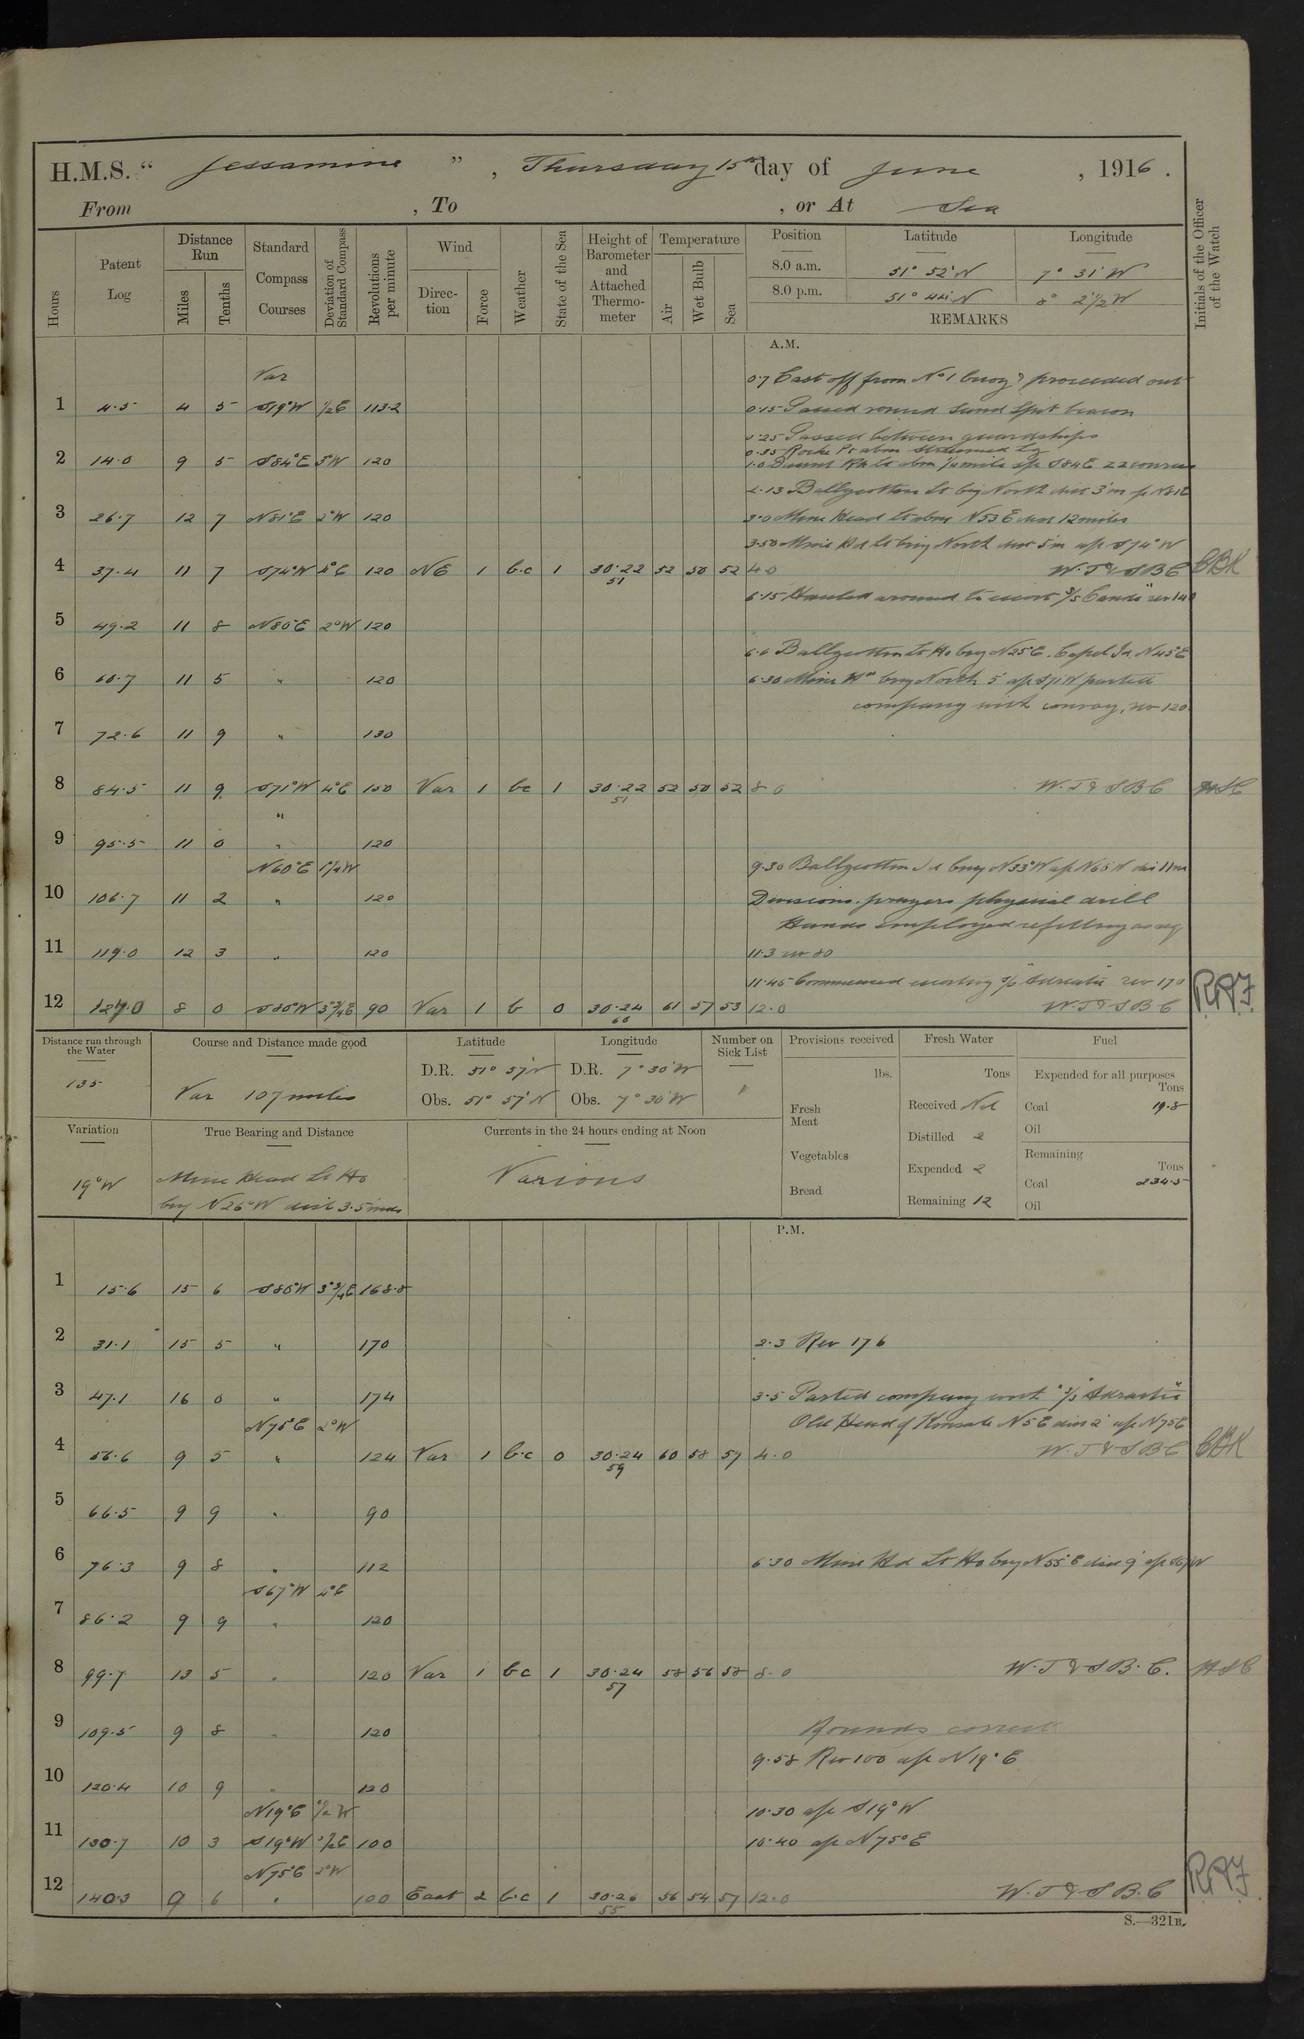 H.M.S. “ Jessamine ” , Thursday 15th day of June , 1916 .
From , To , or At Sea
Hours
Patent Log
Distance Run
Miles
Tenths
Standard Compass Courses
Deviation of Standard Compass
Revolutions per minute
Wind
Direction
Force
Weather
State of the Sea
Height of Barometer and Attached Thermometer
Temperature
Air
Wet Bulb
Sea
Position Latitude Longitude
8.0 a.m. 51° 52' N 7° 31' W
8.0 p.m. 51° 44' N 8° 2½' W
REMARKS
Initials of the Officer of the Watch
A.M.
Var 0.7 Cast off from No 1 buoy & proceeded out
1 4.5 4 5 S19°W ½E 113.2 0.15 Passed round Spit beacon
0.25 Passed between guardships
0.35 Roche Pt abm Streamed Lg
2 14.0 9 5 S84°E 3°W 120 1.0 Daunt Rk Lt abm ¼ mile a/c S84E
2.13 Ballycotton Lt brg North dist 3'm N81E
3 26.7 12 7 N81°E 2°W 120 3.0 Mine Head Lt abm N53E dist 12 miles
3.50 Mine Hd Lt brg North dist 5'm a/c S74°W
4 37.4 11 7 S74°W 4°E 120 NE 1 b.c 1 30.22 51 52 50 52 4.0 W.T.&S.B.C CBK
6.15 Hauled around to escort S/S
5 49.2 11 8 N80°E 2°W 120
6.6 Ballycotton Lt Ho brg N25°E. N45°E
6 60.7 11 5 " 120 6.30 Mine Hd brg North 5' a/c S71W parted
company with convoy, rev 120
7 72.6 11 9 " 130
8 84.5 11 9 S71°W 4°E 150 Var 1 bc 1 30.22 51 52 50 52 8.0 W.T.&S.B.C
"
9 95.5 11 0 " 120
N60°E 1¼W 9.30 Ballycotton Id brg N33°W a/c dis 11m
10 106.7 11 2 " 120 Divisions. prayers physical drill
Hands employed refitting as req
11 119.0 12 3 " 120 11.3 rev 80
11.45 Commenced escorting S/S "Adriatic" rev 170
12 127.0 8 0 S86°W 3¾E 90 Var 1 b 0 30.24 60 61 57 53 12.0 W.T.&S.B.C
Distance run through the Water
135
Course and Distance made good
Var 107 miles
Latitude
D.R. 51° 57' N
Obs. 51° 57' N
Longitude
D.R. 7° 30' W
Obs. 7° 30' W
Number on Sick List
Variation
19°W
True Bearing and Distance
Mine Head Lt Ho
brg N26°W dist 3.5 mls
Currents in the 24 hours ending at Noon
Various
Provisions received
lbs.
Fresh Meat
Vegetables
Bread
Fresh Water
Tons
Received Nil
Distilled 2
Expended 2
Remaining 12
Fuel
Expended for all purposes
Tons
Coal 19.8
Oil
Remaining
Tons
Coal 234.5
Oil
P.M.
1 15.6 15 6 S86°W 3¾E 168.8
2 31.1 15 5 " 170 2.3 Rev 176
3 47.1 16 0 " 174 3.5 Parted company with S/S "Adriatic"
N75°E 2°W Old Head of Kinsale N5E dist 2' a/c N75E
4 56.6 9 5 " 124 Var 1 b.c 0 30.24 59 60 58 57 4.0 W.T.&S.B.C CBK
5 66.5 9 9 " 90
6 76.3 9 8 " 112 6.30 Mine Hd Lt Ho brg N55°E dist 9' a/c S67W
S67°W 4°E
7 86.2 9 9 " 120
8 99.7 13 5 " 120 Var 1 b.c 1 30.24 57 58 56 58 8.0 W.T.&S.B.C.
9 109.5 9 8 " 120 Rounds correct
9.58 Rev 100 a/c N19°E
10 120.4 10 9 " 120
N19°E ½W 10.30 a/c S19°W
11 130.7 10 3 S19°W ½E 100 10.40 a/c N75°E
N75°E 2°W
12 140.3 9 6 " 100 East 2 b.c 1 30.26 55 56 54 57 12.0 W.T.&S.B.C
S.—321B.